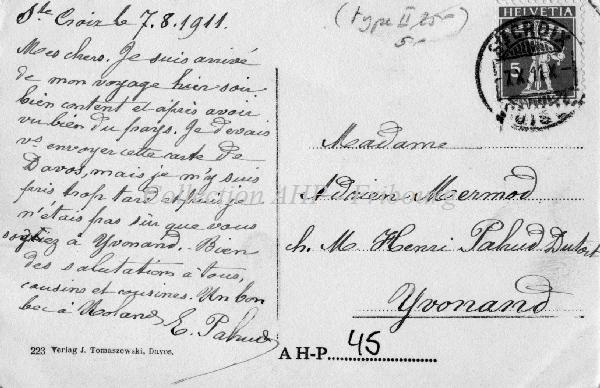 Ste Croix le 7.8.1911.
Mes chers. Je suis arrivé
de mon voyage hier soir
bien content et après avoir
vu bien du pays. Je devais
vs envoyer cette carte de
Davos, mais je m'y suis
pris trop tard et puis je
n'étais pas sûr que vous
soyiez à Yvonand. Bien
des salutations à tous,
cousins et cousines. Un bon
bec à Roland E. Pahud
223 Verlag J. Tomaszewski, Davos.
(type II 25.-
5.-
HELVETIA
5
STE CROIX
Madame
Adrien Mermod
ch. M Henri Pahud Dutoit
Yvonand
AH-P. 45
Collection AHP - Fribourg